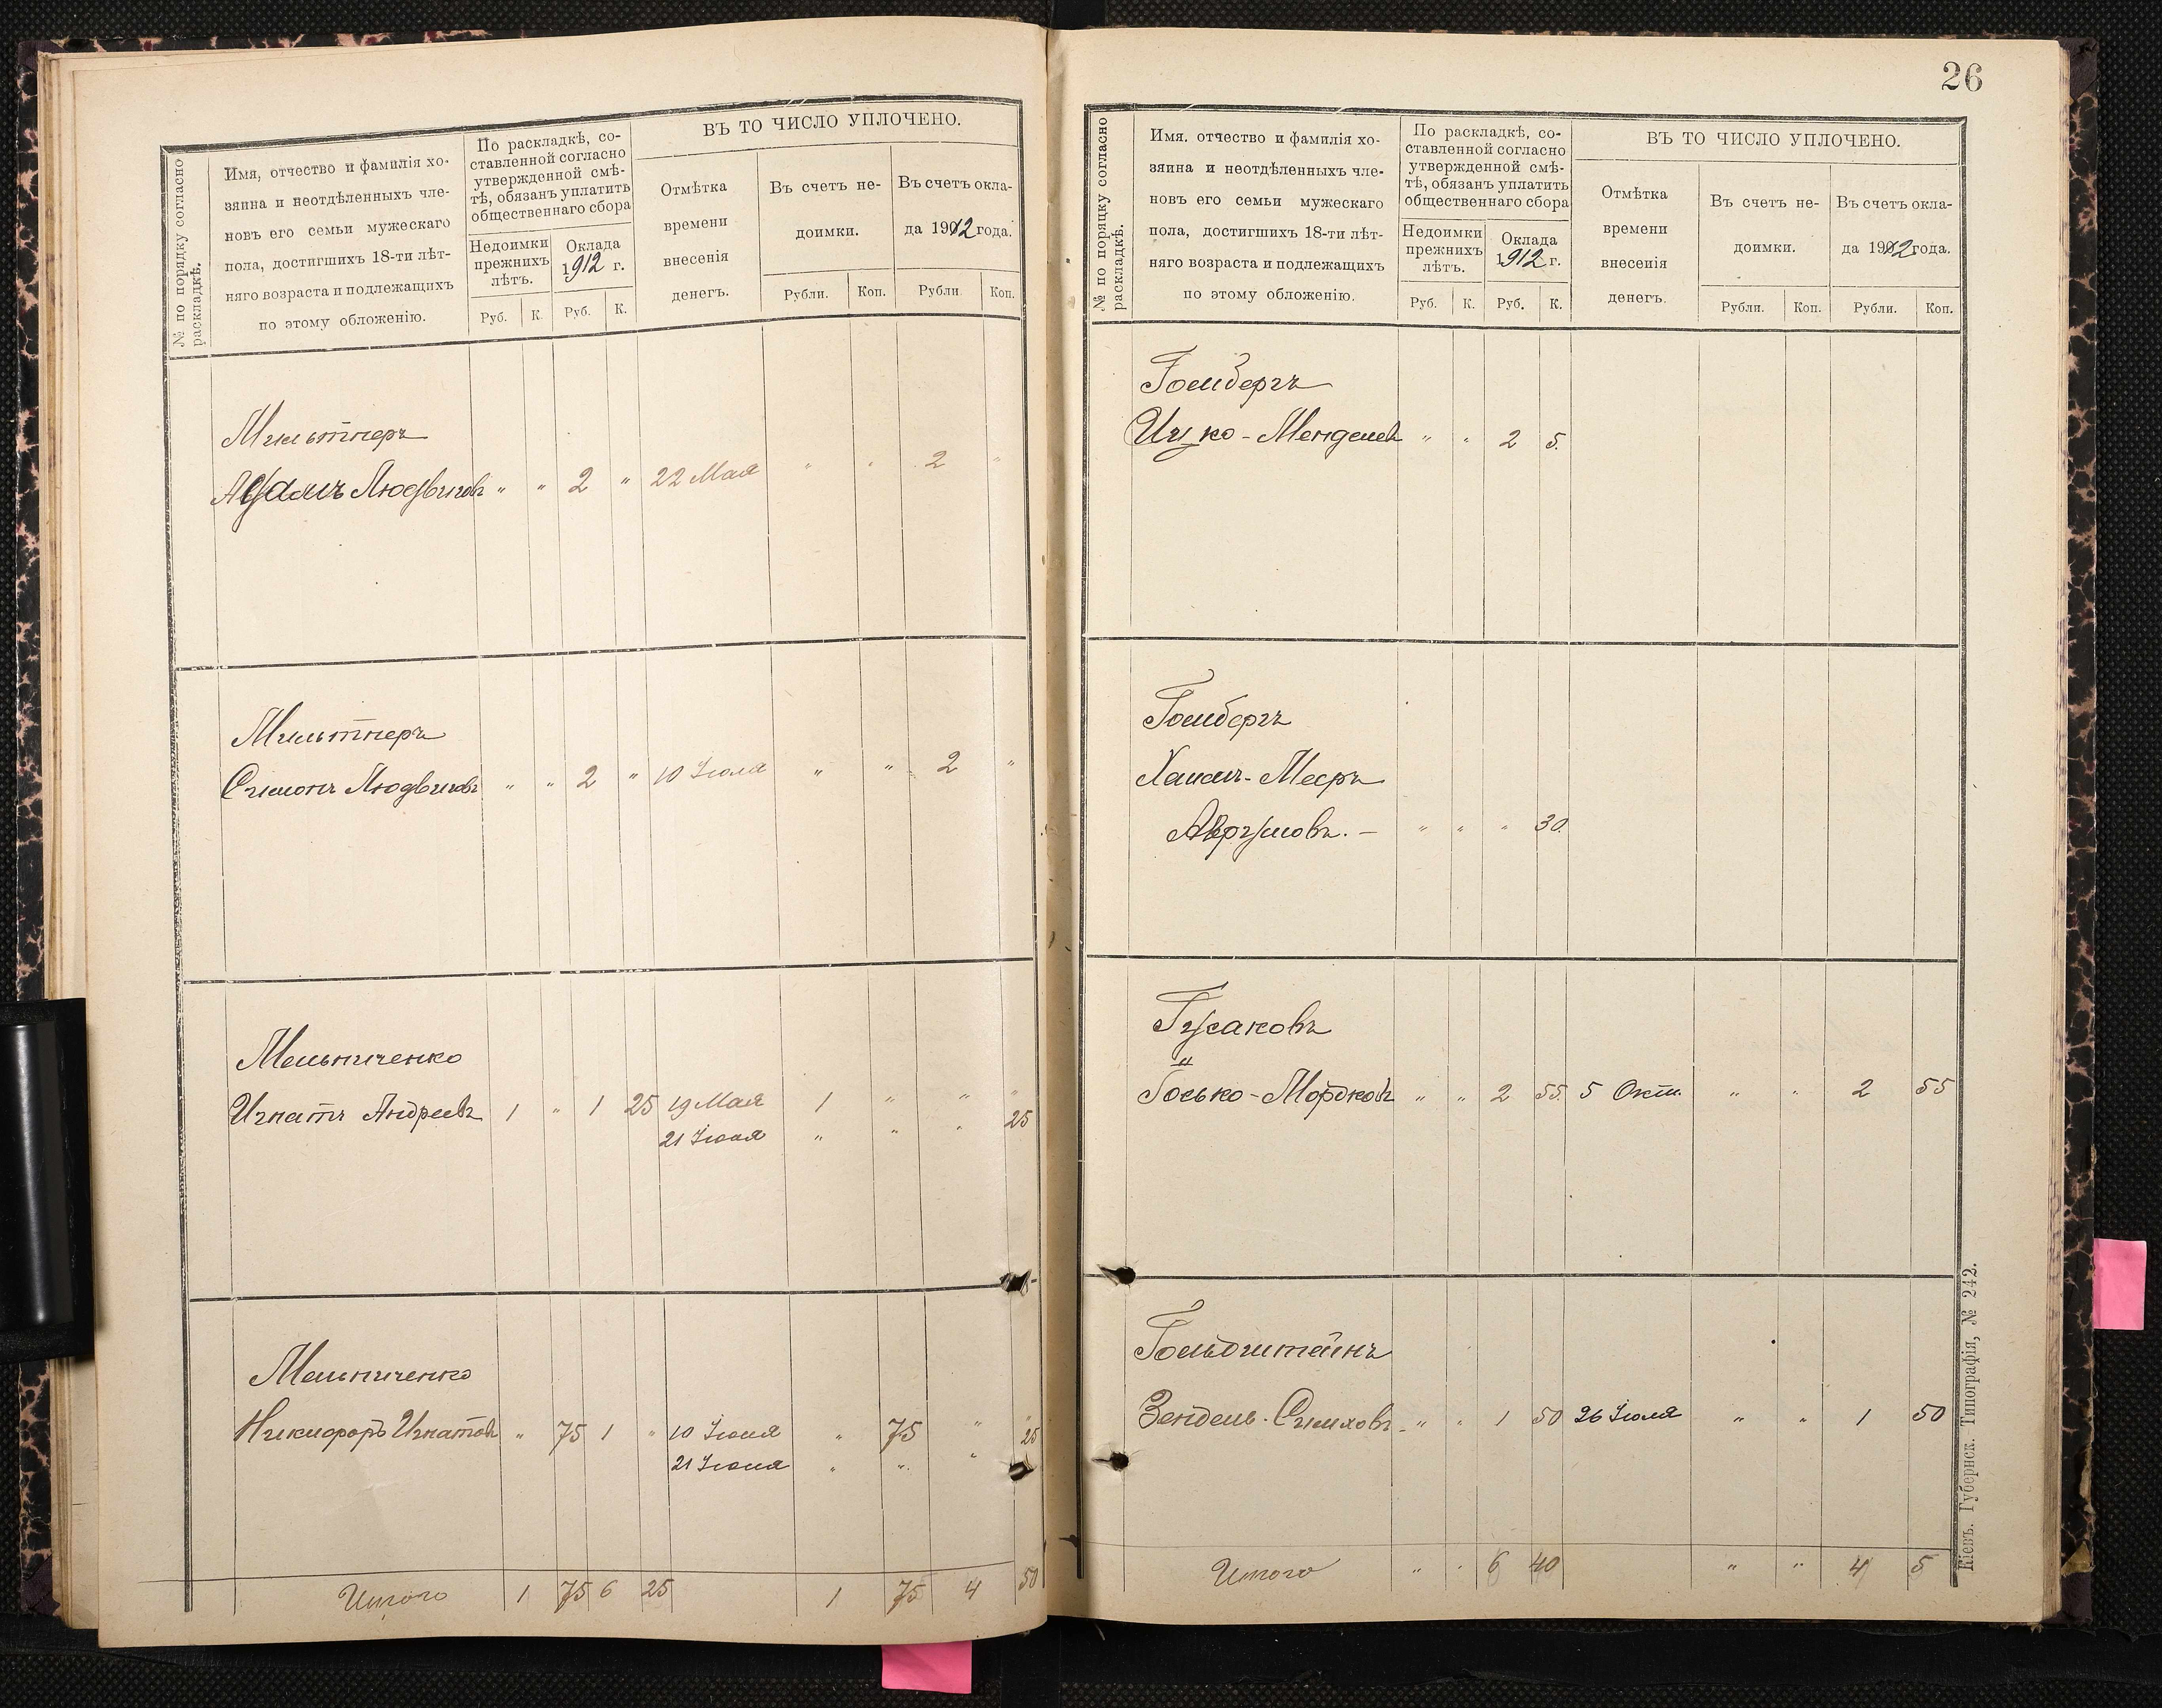 № по порядку согласно раскладкѣ.
Имя, отчество и фамилія хо-
зяина и неотдѣленныхъ чле-
новъ его семьи мужескаго
пола, достигшихъ 18-ти лѣт-
няго возраста и подлежащихъ
по этому обложенію.
По раскладкѣ, со-
ставленной согласно
утвержденной смѣ-
тѣ, обязанъ уплатить
общественнаго сбора
Недоимки прежнихъ лѣтъ.
Оклада 1912 г.
Руб. К. Руб. К.
ВЪ ТО ЧИСЛО УПЛОЧЕНО.
Отмѣтка
времени
внесенія
денегъ.
Въ счетъ не-
доимки.
Въ счетъ окла-
да 1912 года.
Рубли. Коп. Рубли Коп.
Мильтнеръ
Адамъ Людвиговъ " " 2 " 22 Мая " " 2 "
Мильтнеръ
Симонъ Людвиговъ " " 2 " 10 Іюля " " 2 "
Мельниченко
Игнатъ Андреевъ 1 " 1 25 19 Мая 1 " " "
21 Іюня " " " 25
Мельниченко
Никифоръ Игнатовъ " 75 1 " 10 Іюня " 75 " "
21 Іюня " " " 25
Итого 1 75 6 25 1 75 4 50
26
№ по порядку согласно раскладкѣ.
Имя. отчество и фамилія хо-
зяина и неотдѣленныхъ чле-
новъ его семьи мужескаго
пола, достигшихъ 18-ти лѣт-
няго возраста и подлежащихъ
по этому обложенію.
По раскладкѣ, со-
ставленной согласно
утвержденной смѣ-
тѣ, обязанъ уплатить
общественнаго сбора
Недоимки прежнихъ лѣтъ.
Оклада 1912 г.
Руб. К. Руб. К.
ВЪ ТО ЧИСЛО УПЛОЧЕНО.
Отмѣтка
времени
внесенія
денегъ.
Въ счетъ не-
доимки.
Въ счетъ окла-
да 1912 года.
Рубли. Коп. Рубли. Коп.
Гомбергъ
Ицко-Менделев " " 2 5.
Гомбергъ
Хаимъ-Мееръ
Аврумовъ. — " " " 30.
Гусаковъ
Іосько-Мордков " " 2 55. 5 Окт. " " 2 55
Гольдштейнъ
Зендель-Симховъ " " 1 50 26 Іюля " " 1 50
Итого " " 6 40 " " 4 5
Кіевъ. Губернск. Типографія, № 242.